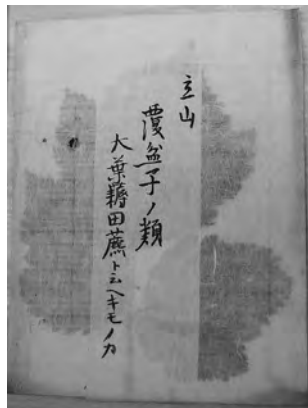 立山
覆盆子ノ類
大葉藨田藨ト云ヘキモノカ